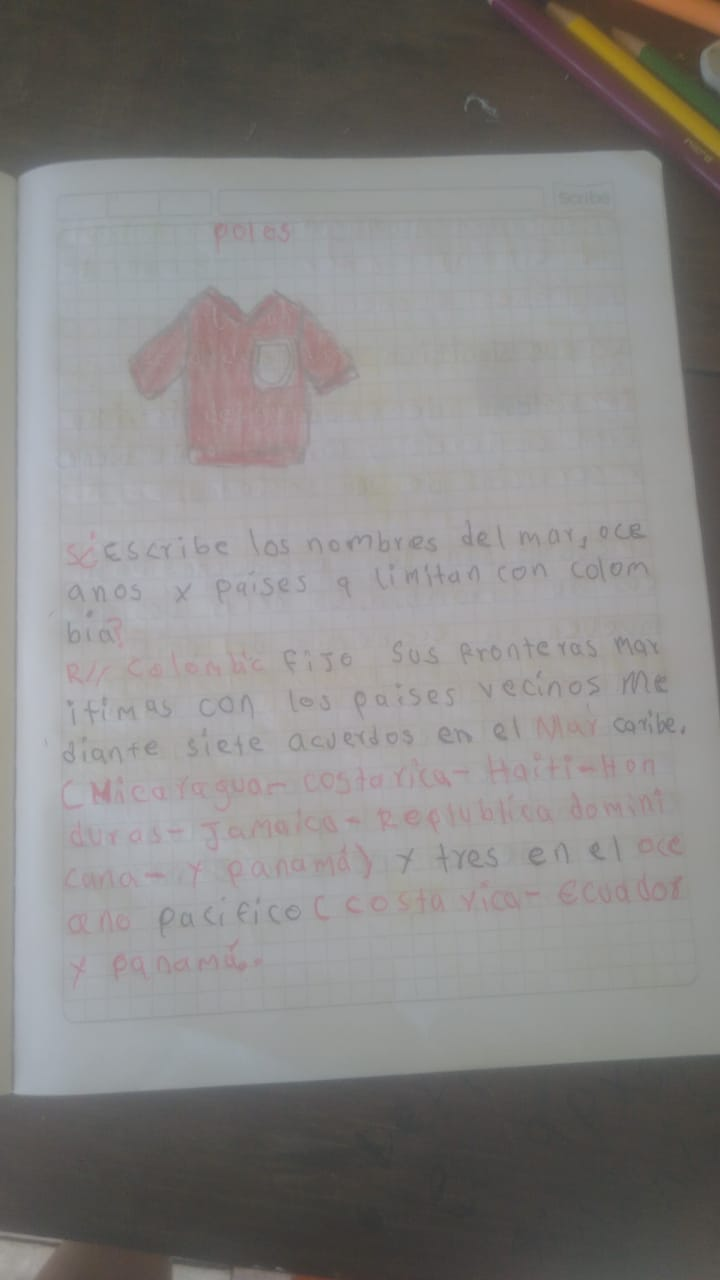 Scribe
polos
5¿Escribe los nombres del mar, oce
anos x paises q limitan con colom
bia?
R// Colombia fijo sus fronteras mar
itimas con los paises vecinos me
diante siete acuerdos en el Mar caribe,
(Nicaragua- costa rica- Haiti- Hon
duras- Jamaica- Republica domini
cana- Y panamá) Y tres en el oce
ano pacifico (costa rica- Ecuador
Y panamá.